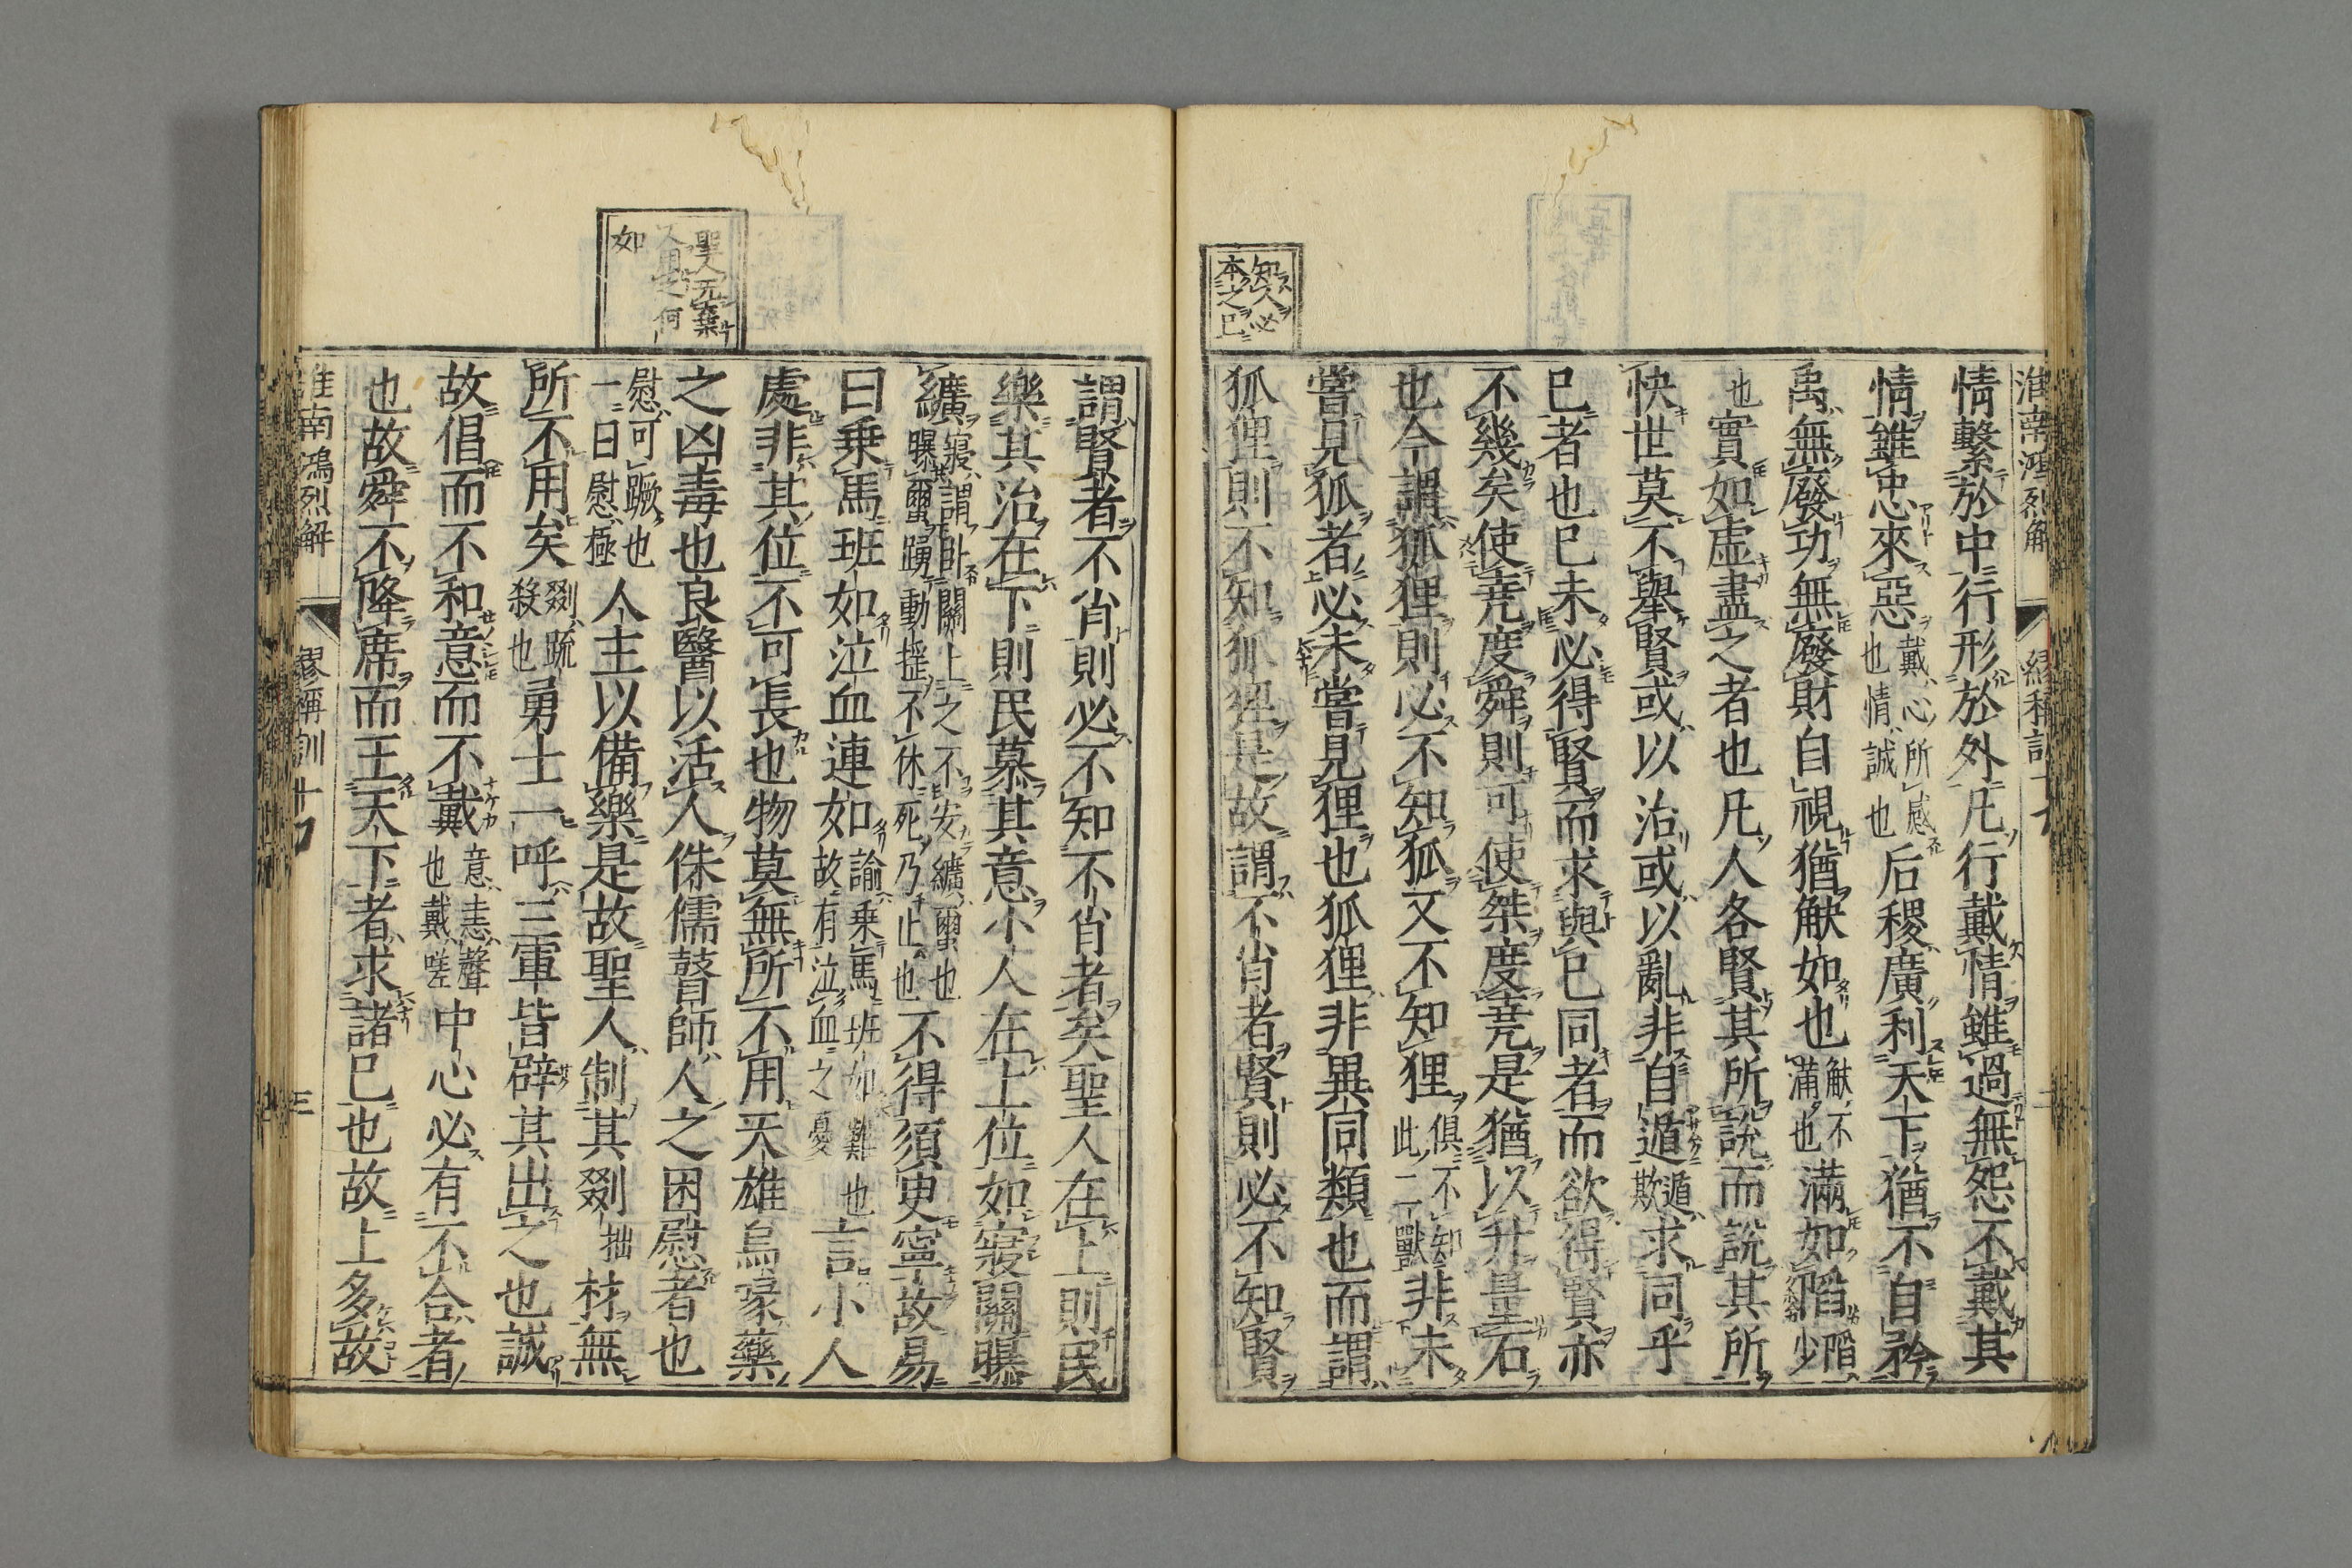 知人必
本之己
情繫於中行形於外凡行戴情雖過無怨不戴其
情雖忠來惡戴心所感也情誠也后稷廣利天下猶不自矜
禹無廢功無廢財自視猶觖如也觖不滿也滿如陷陷少
也實如虛盡之者也凡人各賢其所說而說其所
快世莫不舉賢或以治或以亂非自遁遁欺求同乎
己者也己未必得賢而求與己同者而欲得賢亦
不幾矣使堯度舜則可使桀度堯是猶以升量石
也今謂狐狸則必不知狐又不知狸俱不知此二獸非未
嘗見狐者必未嘗見狸也狐狸非異同類也而謂
狐狸則不知狐狸是故謂不肖者賢則必不知賢
聖人元
何
如
謂賢者不肖則必不知不肖者矣聖人在上則民
樂其治在下則民慕其意小人在上位如寢關曝
纊寢謂臥關上之不安纊蠒也曝蠒踊動搖不休死乃止也不得須臾寧故易
曰乗馬班如泣血連如諭乗馬班如難也故有泣血之憂言小人
處非其位不可長也物莫無所不用天雄烏豪藥
之凶毒也良醫以活人侏儒瞽師人之困慰者也
慰可蹶也一曰慰極人主以備樂是故聖人制其剟拙材無
所不用矣剟疏殺也勇士一呼三軍皆辟其出之也誠
故倡而不和意而不戴意恚聲也戴嗟中心必有不合者
也故舜不降席而王天下者求諸己也故上多故
淮南鴻烈解 繆稱訓十 三